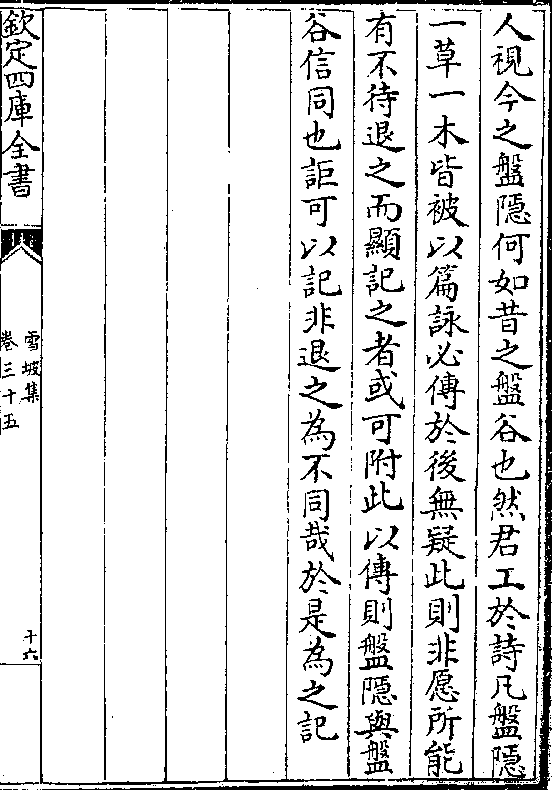 人視今之盤隱何如昔之盤谷也然君工於詩凡盤隱
一草一木皆被以篇詠必傳於後無疑此則非愿所能
有不待退之而顯記之者或可附此以傳則盤隱與盤
谷信同也詎可以記非退之為不同哉於是為之記
欽定四庫全書
雪坡集
卷三十五
十六